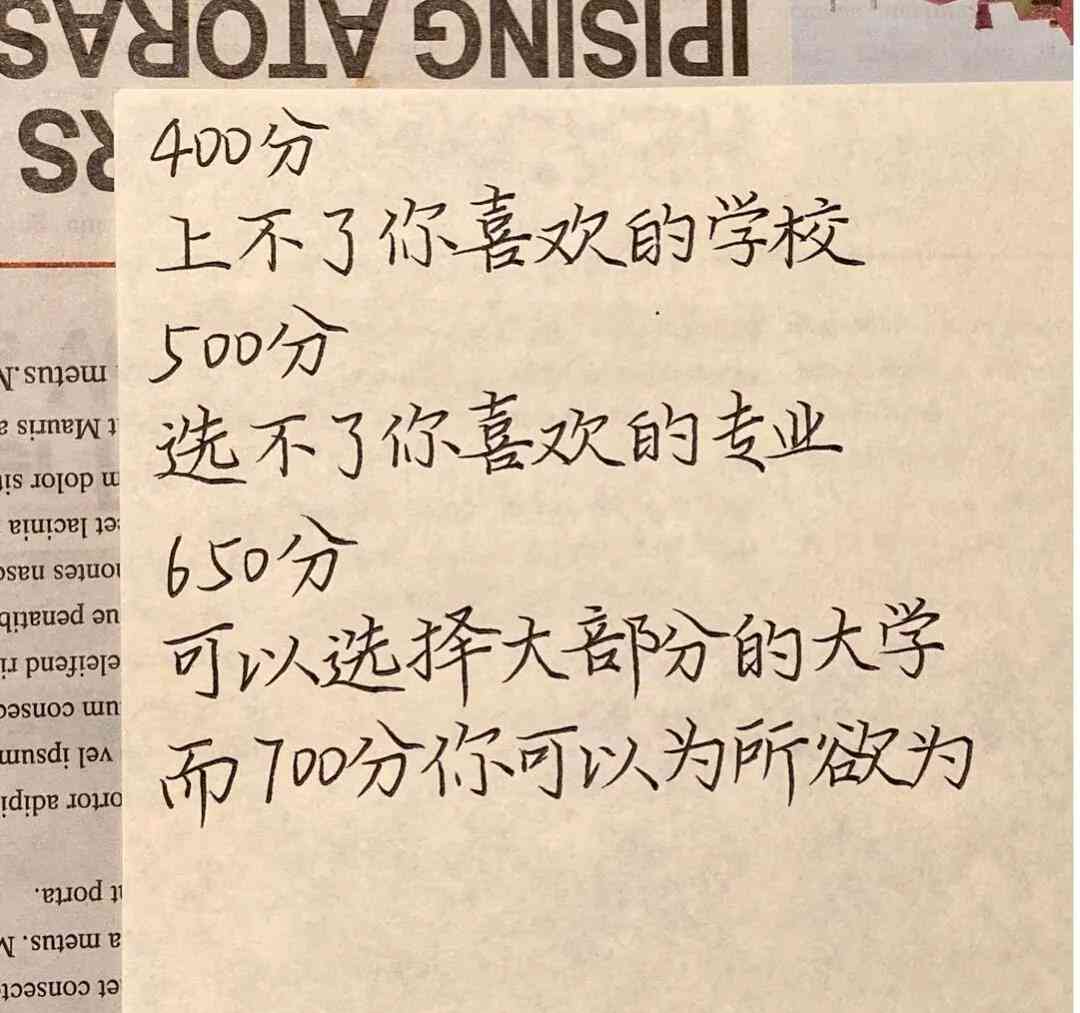 IPISING ATORAS
RS
400分
上不了你喜欢的学校
500分
选不了你喜欢的专业
650分
可以选择大部分的大学
而700分你可以为所欲为
metus.
t Mauris a
dolor sit
et lacinia
montes nasc
penatib
eleifend ri
um consec
vel ipsum
tortor adipi
porta.
a metus. M
et consect